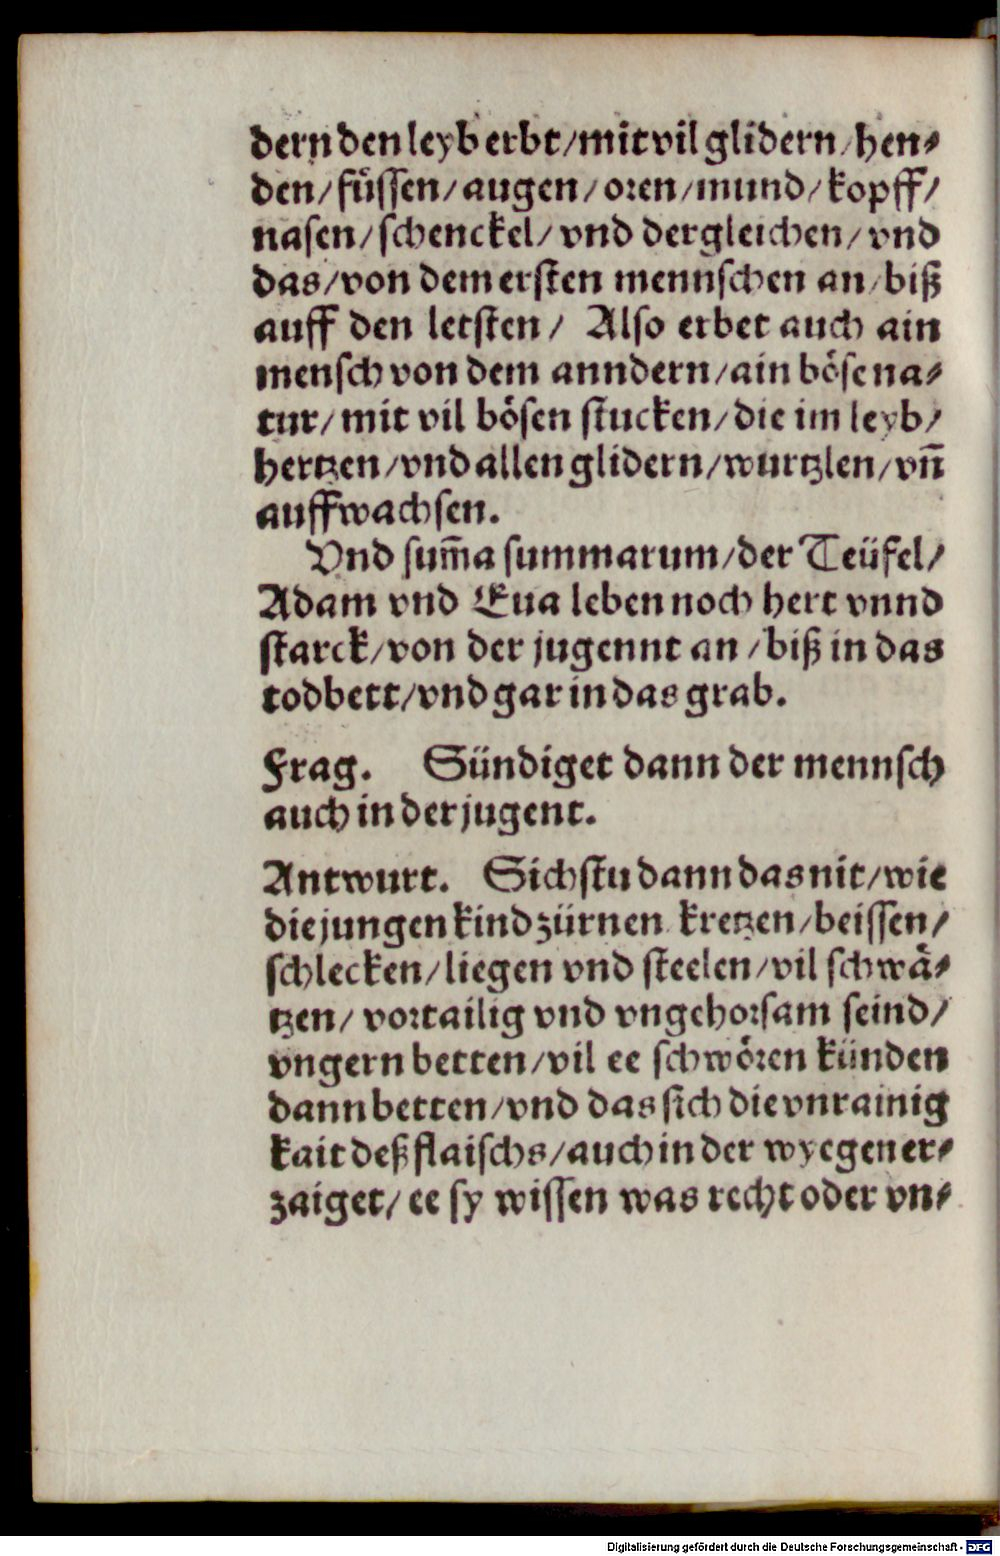 dern den leyb erbt/mit vil glidern/hen⸗
den/füssen/augen/oren/mund/kopff/
nasen/schenckel/vnd dergleichen/vnd
das/von dem ersten mennschen an/biß
auff den letsten/ Also erbet auch ain
mensch von dem anndern/ain böse na⸗
tur/mit vil bösen stucken/die im leyb/
hertzen/vnd allen glidern/wurtzlen/vn̄
auffwachsen.
Vnd sum̄a summarum/der Teüfel/
Adam vnd Eua leben noch hert vnnd
starck/von der jugennt an /biß in das
todbett/vnd gar in das grab.
Frag. Sündiget dann der mennsch
auch in der jugent.
Antwurt. Sichstu dann das nit/wie
die jungen kind zürnen kretzen/beissen/
schlecken/liegen vnd steelen/vil schwä⸗
tzen/ vortailig vnd vngehorsam seind/
vngern betten/vil ee schwören künden
dann betten/vnd das sich die vnrainig
kait deß flaischs/auch in der wyegen er⸗
zaiget/ ee sy wissen was recht oder vn⸗
Digitalisierung gefördert durch die Deutsche Forschungsgemeinschaft - DFG